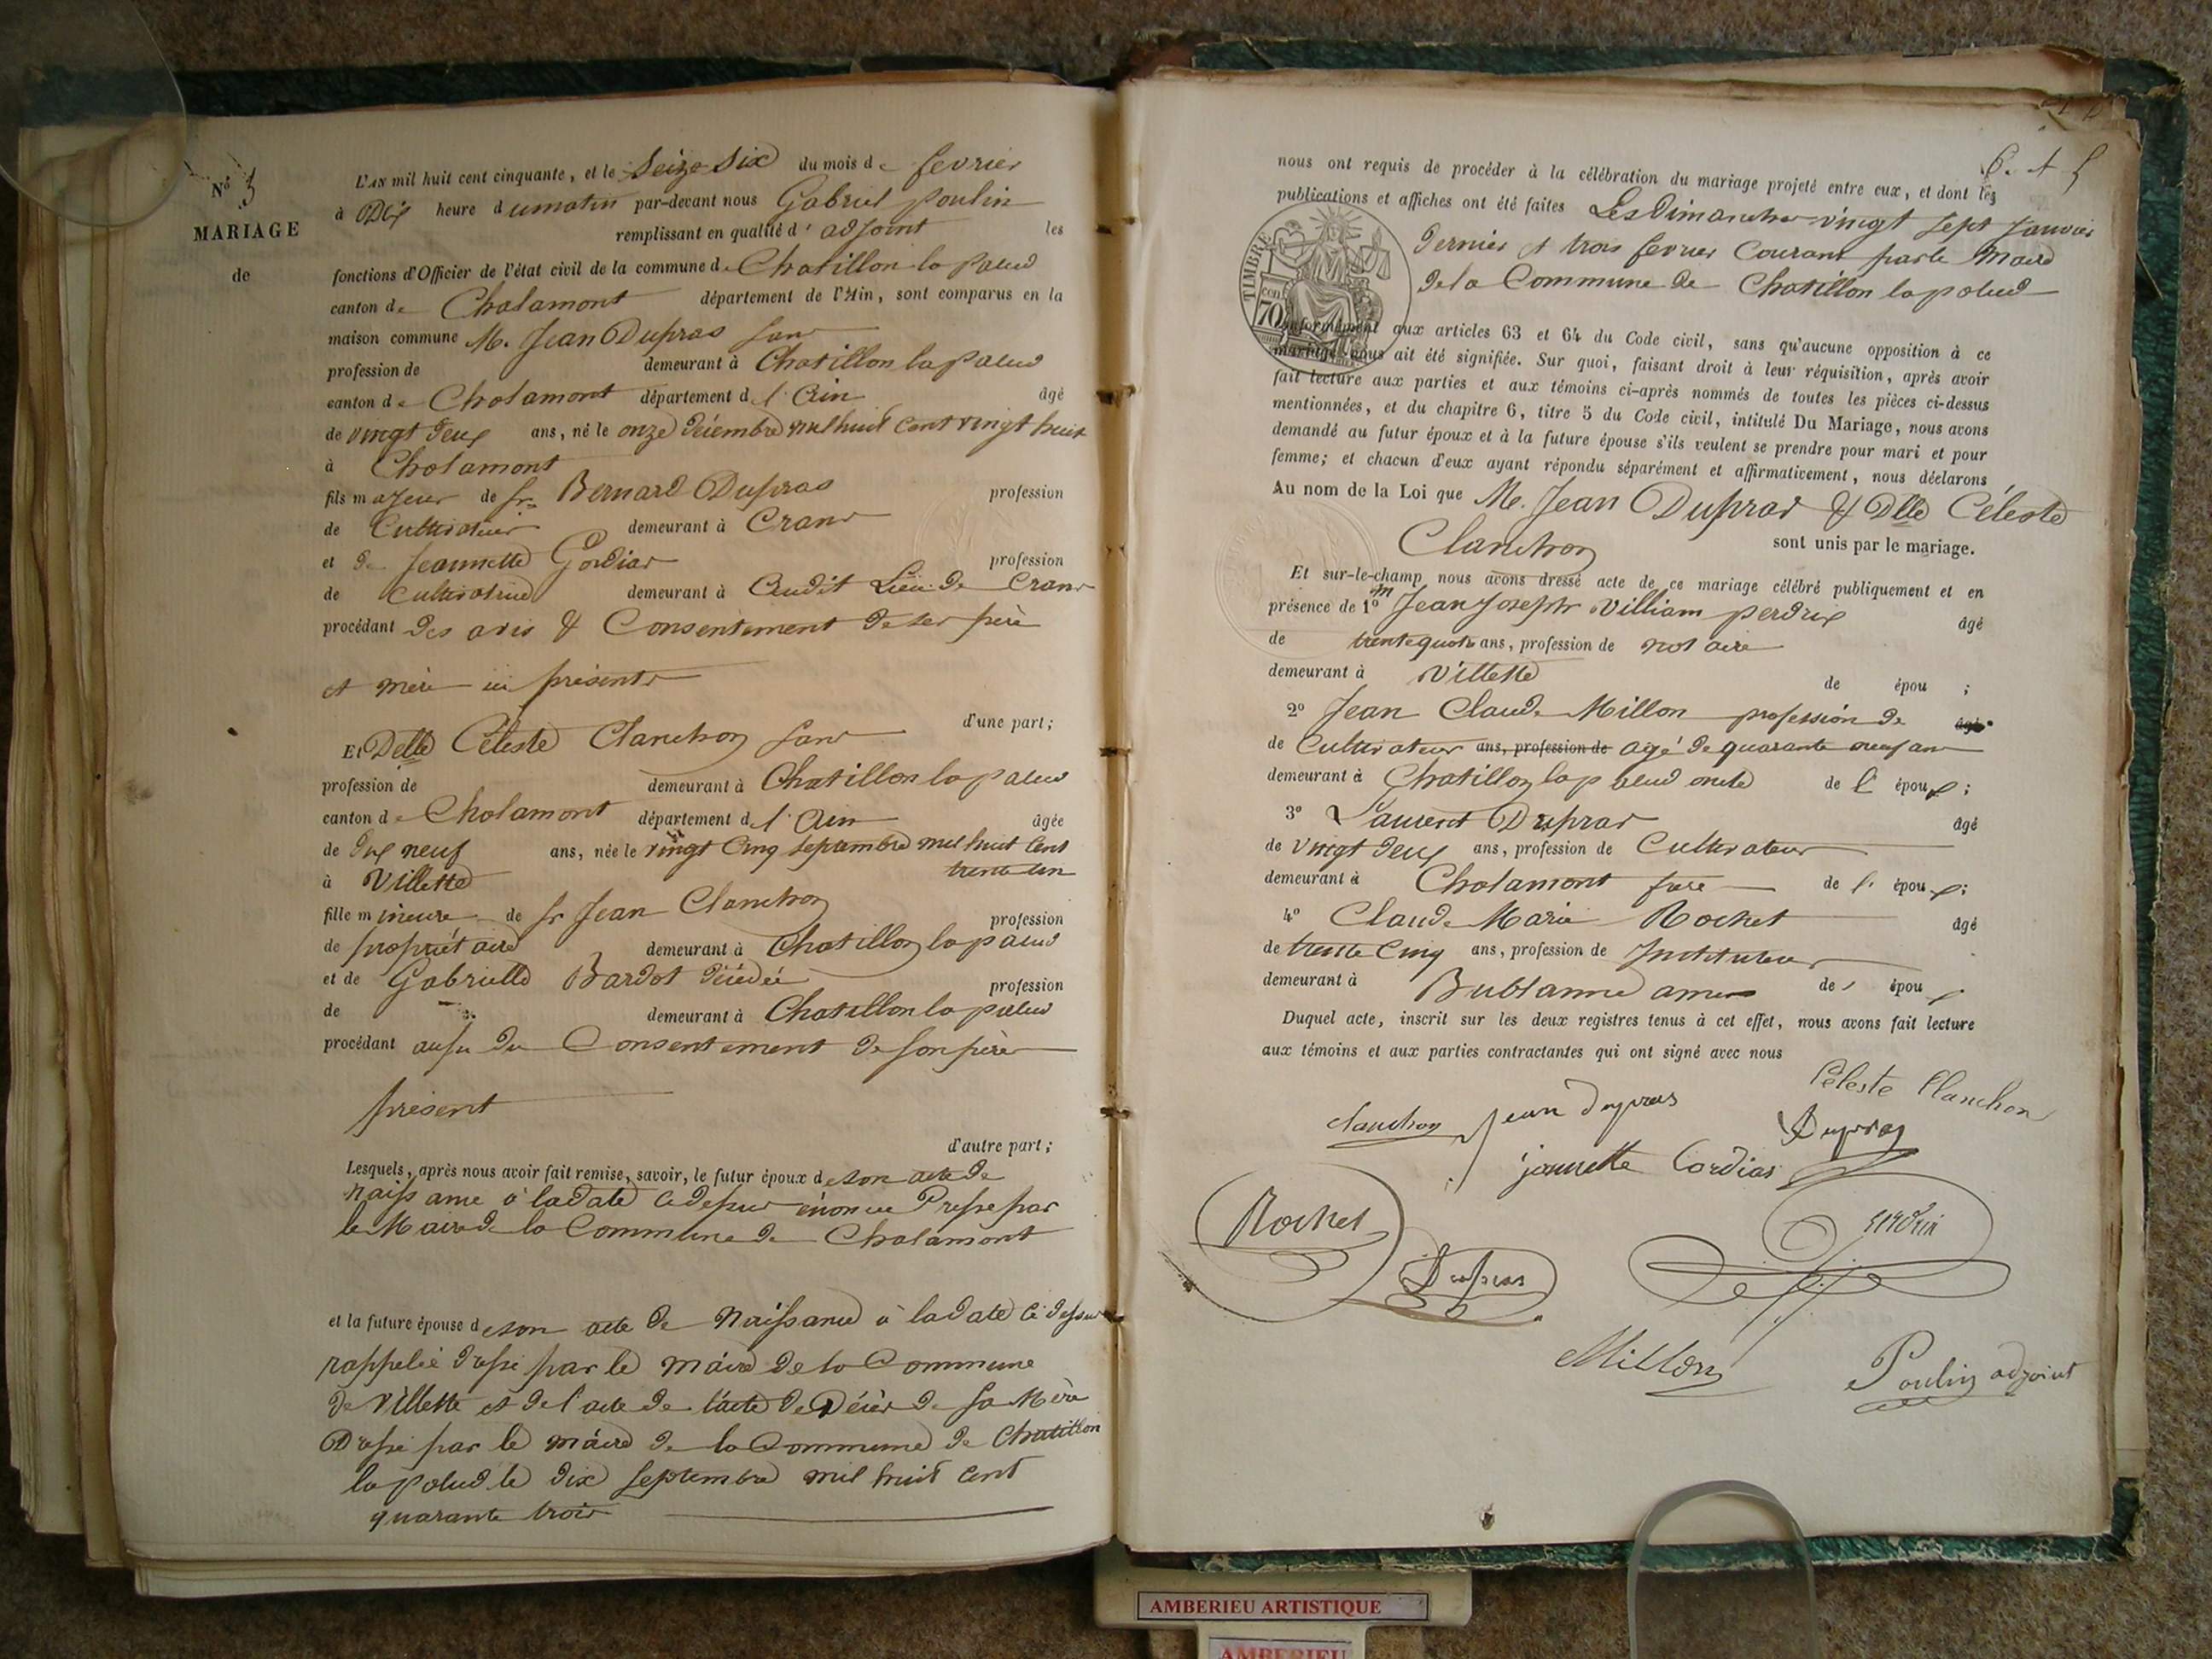 N° 3
MARIAGE
de
L'AN mil huit cent cinquante, et le seize six du mois de fevrier
à Dix heure dumatin par-devant nous Gabriel poulin
remplissant en qualité d' adjoint les
fonctions d'Officier de l'état civil de la commune de Chatillon la palud
canton de Chalamont département de l'Ain, sont comparus en la
maison commune M. Jean Dupras sans
profession de demeurant à Chatillon la palud
canton de Chalamont département de l'Ain âgé
de vingt deux ans, né le onze décembre mil huit cent vingt huit
à Chalamont
fils majeur de sr Bernard Dupras profession
de Cultivateur demeurant à Crans
et de Jeannette Gordias profession
de Cultivatrice demeurant à Audit Lieu de Crans
procédant des avis & Consentement de ses père
et mère ici présents
d'une part;
Et Delle Céleste Clanchon sans
profession de demeurant à Chatillon la palud
canton de Chalamont département de l'Ain âgée
de dix neuf ans, née le vingt cinq septembre mil huit cent
à Villette trente un
fille mineure de sr Jean Clanchon profession
de propriétaire demeurant à Chatillon la palud
et de Gabrielle Bardot décédée profession
de demeurant à Chatillon la palud
procédant aussi du Consentement de son père
présent
d'autre part;
Lesquels, après nous avoir fait remise, savoir, le futur époux de son acte de
naissance à la date ci dessus énoncé Dressé par
le Maire de la Commune de Chalamont
et la future épouse de son acte de Naissance à la date ci dessus
rappelée dressé par le maire de la Commune
de Villette et de l'acte de l'acte de Décès de sa Mère
Dressé par le maire de la Commune de Chatillon
la palud le dix septembre mil huit cent
quarante trois
nous ont requis de procéder à la célébration du mariage projeté entre eux, et dont les
publications et affiches ont été faites Les Dimanches vingt sept Janvier
dernier et trois fevrier Courant par le Maire
de la Commune de Chatillon la palud
TIMBRE
70
conformément aux articles 63 et 64 du Code civil, sans qu'aucune opposition à ce
mariage nous ait été signifiée. Sur quoi, faisant droit à leur réquisition, après avoir
fait lecture aux parties et aux témoins ci-après nommés de toutes les pièces ci-dessus
mentionnées, et du chapitre 6, titre 5 du Code civil, intitulé Du Mariage, nous avons
demandé au futur époux et à la future épouse s'ils veulent se prendre pour mari et pour
femme; et chacun d'eux ayant répondu séparément et affirmativement, nous déclarons
Au nom de la Loi que M. Jean Dupras & Dlle Céleste
Clanchon sont unis par le mariage.
Et sur-le-champ nous avons dressé acte de ce mariage célébré publiquement et en
présence de 1° m Jean Joseph William perdrix âgé
de trente quatre ans, profession de notaire
demeurant à Villette de épou ;
2° Jean Claude Millon profession de âgé
de Cultivateur ans, profession de agé de quarante neuf ans
demeurant à Chatillon la palud oncle de l' époux;
3° Laurent Dupras âgé
de vingt deux ans, profession de Cultivateur
demeurant à Chalamont frère de l' époux;
4° Claude Marie Rochet âgé
de trente cinq ans, profession de Instituteur
demeurant à Bublanne amis de l' époux
Duquel acte, inscrit sur les deux registres tenus à cet effet, nous avons fait lecture
aux témoins et aux parties contractantes qui ont signé avec nous
Céleste Clanchon
clanchon Jean Dupras Dupras
jannette Cordias
Rochet perdrix
Dupras
Millon Poulin adjoint
AMBERIEU ARTISTIQUE
AMBERIEU